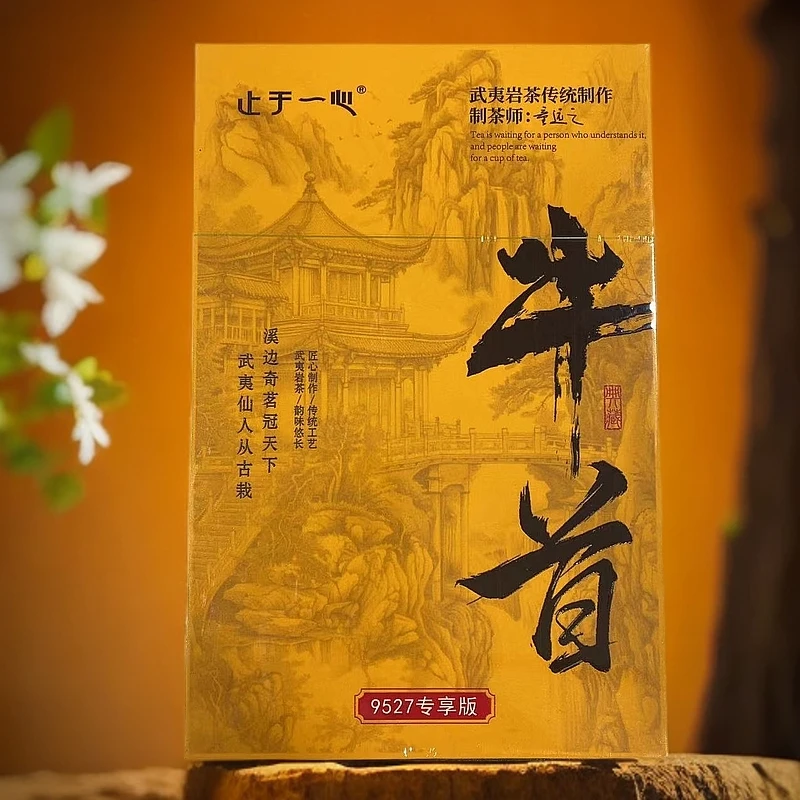 止于一心®
武夷岩茶传统制作
制茶师:
Tea is waiting for a person who understands it,
and people are waiting
for a cup of tea.
牛首
典藏
匠心制作/传统工艺
武夷岩茶/韵味悠长
溪边奇茗冠天下
武夷仙人从古栽
9527专享版